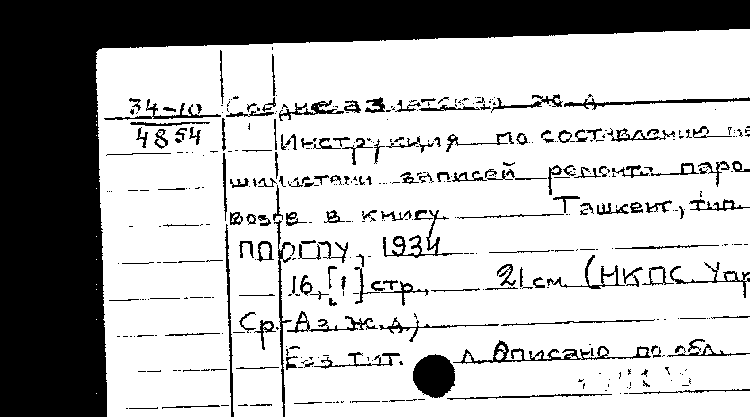 34-10 Среднеазиатская ж. д.
4854
Инструкция по составлению ма
шинистами записей ремонта паро
возов в книгу. Ташкент, тип.
ПП ОГПУ, 1934
16, [1] стр., 21 см. (НКПС. Упр
Ср.-Аз. ж. д.).
Без тит. л. Описано по обл.